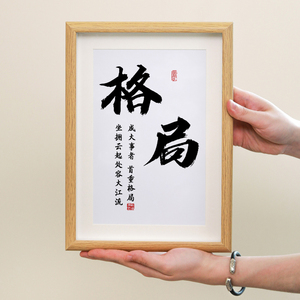 格局
成大事者 首重格局
坐拥云起处 容大江流